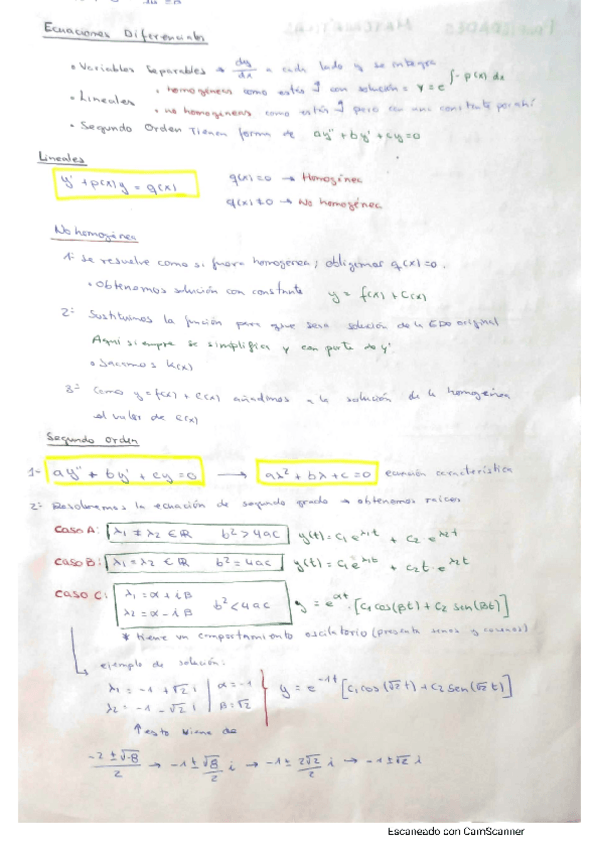 Ecuaciones Diferenciales
• Variables Separables → dy/dx a cada lado y se integra
• Lineales • homogéneas como están y con solución = y = e^∫-p(x) dx
• no homogéneas como están y pero con una constante por ahí
• Segundo Orden Tienen forma de ay'' + by' + cy = 0
Lineales
y' + p(x) y = q(x) q(x) = 0 → Homogénea
q(x) ≠ 0 → No homogénea
No homogénea
1º se resuelve como si fuera homogenea; obligamos q(x)=0.
• Obtenemos solución con constante y = f(x) + C(x)
2º Sustituimos la función para que sea solución de la EDO original
Aquí siempre se simplifica y con parte de y'
• Sacamos k(x)
3º Como y = f(x) + c(x) añadimos a la solución de la homogénea
el valor de c(x)
Segundo Orden
1- ay'' + by' + cy = 0 → aλ² + bλ + c = 0 ecuación característica
2º Resolvemos la ecuación de segundo grado → obtenemos raíces
CASO A: λ1 ≠ λ2 ∈ ℝ b² > 4ac y(t) = c1 e^λ1t + c2 · e^λ2t
CASO B: λ1 = λ2 ∈ ℝ b² = 4ac y(t) = c1 e^λ1t + c2 t · e^λ2t
CASO C: λ1 = α + iβ
λ2 = α - iβ b² < 4ac y = e^αt · [c1 cos(βt) + c2 sen(βt)]
* tiene un comportamiento oscilatorio (presenta senos y cosenos)
ejemplo de solución:
λ1 = -1 + √2 i | α = -1
λ2 = -1 - √2 i | β = √2 y = e^-1t [c1 cos(√2 t) + c2 sen(√2 t)]
↑ esto viene de
-2 ± √-8 / 2 → -1 ± √8/2 i → -1 ± 2√2/2 i → -1 ± √2 i
Escaneado con CamScanner